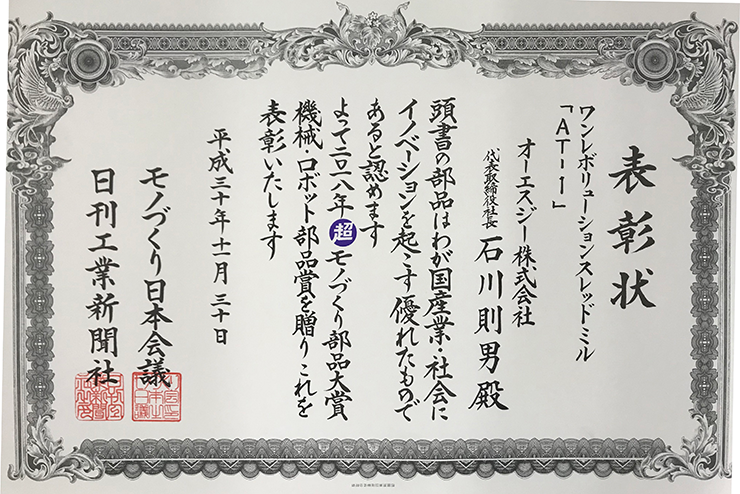 表彰状
ワンレボリューションスレッドミル
「AT-1」
オーエスジー株式会社
代表取締役社長 石川則男殿
頭書の部品はわが国産業・社会に
イノベーションを起こす優れたもので
あると認めます
よって二〇一八年超モノづくり部品大賞
機械・ロボット部品賞を贈りこれを
表彰いたします
平成三十年十一月三十日
モノづくり日本会議
日刊工業新聞社